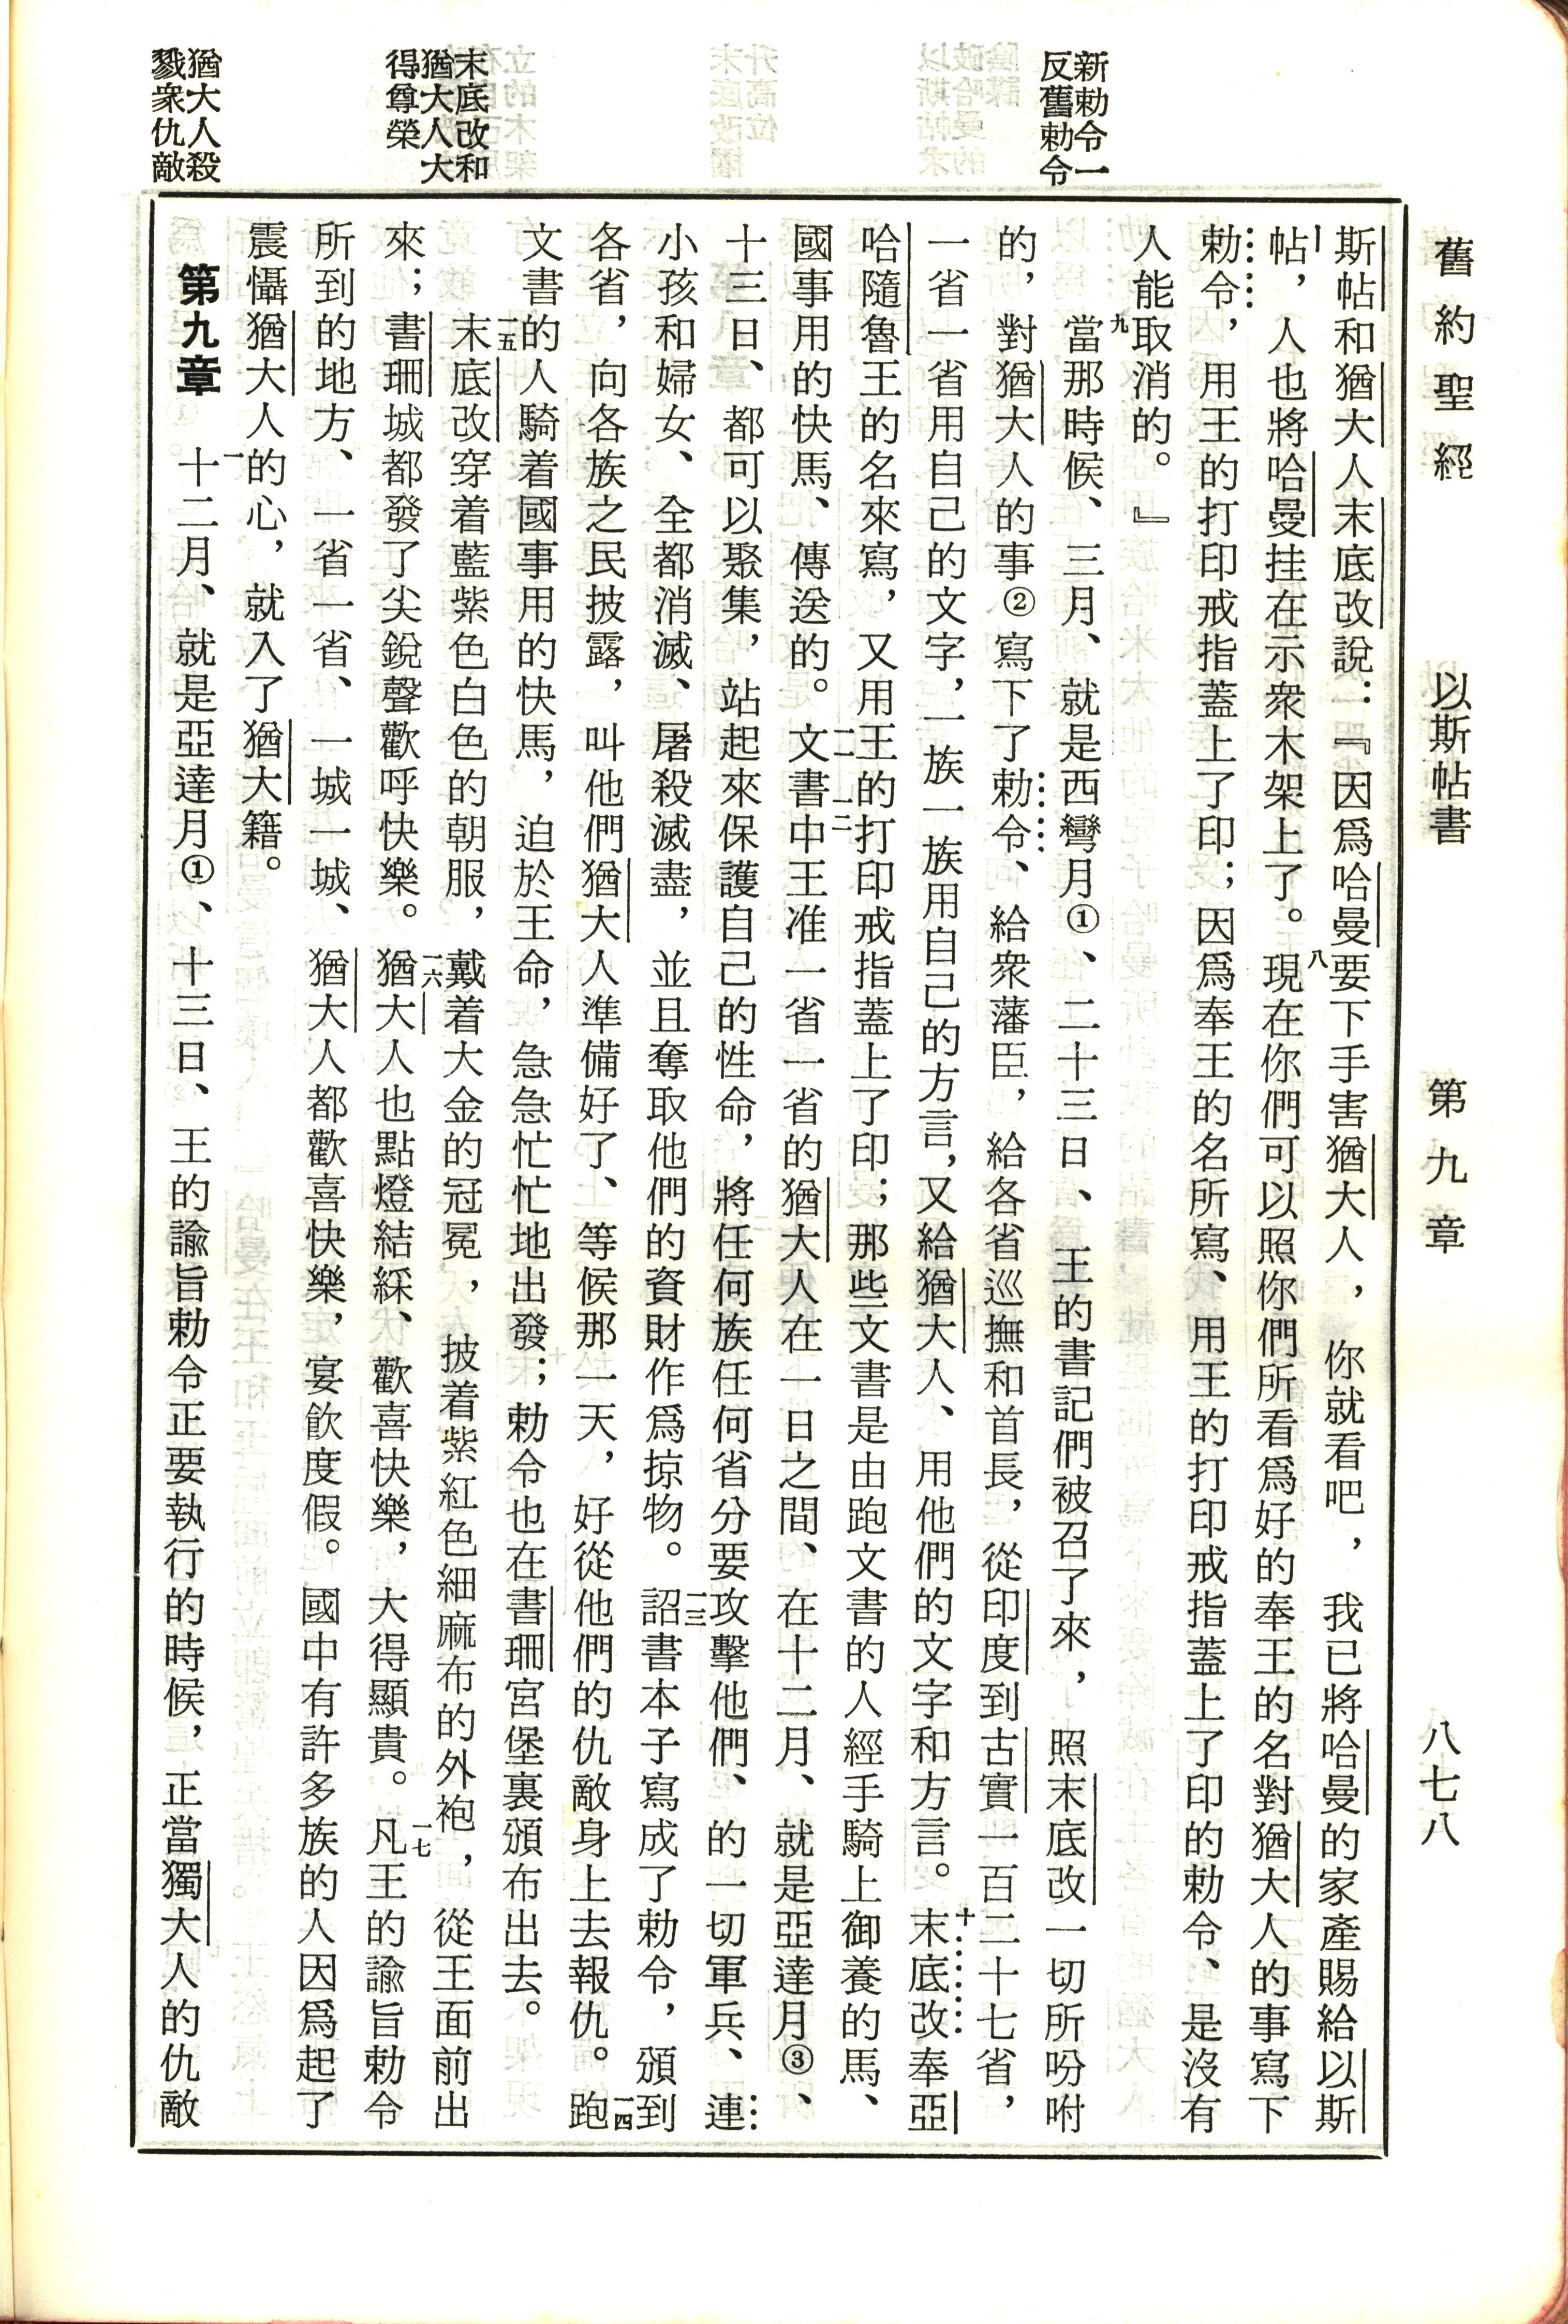 舊約聖經　以斯帖書　第九章　八七八
新勅令一
反舊勅令
末底改和
猶大人大
得尊榮
猶大人殺
戮衆仇敵
斯帖和猶大人末底改說：『因爲哈曼要下手害猶大人，你就看吧，我已將哈曼的家產賜給以斯
帖，人也將哈曼挂在示衆木架上了。八現在你們可以照你們所看爲好的奉王的名對猶大人的事寫下
勅令，用王的打印戒指蓋上了印；因爲奉王的名所寫、用王的打印戒指蓋上了印的勅令、是沒有
人能取消的。』
九當那時候、三月、就是西彎月①、二十三日、王的書記們被召了來，照末底改一切所吩咐
的，對猶大人的事②寫下了勅令、給衆藩臣，給各省巡撫和首長，從印度到古實一百二十七省，
一省一省用自己的文字，一族一族用自己的方言，又給猶大人、用他們的文字和方言。十末底改奉亞
哈隨魯王的名來寫，又用王的打印戒指蓋上了印；那些文書是由跑文書的人經手騎上御養的馬、
國事用的快馬、傳送的。一一文書中王准一省一省的猶大人在一日之間、在十二月、就是亞達月③、
十三日、都可以聚集，站起來保護自己的性命，將任何族任何省分要攻擊他們、的一切軍兵、連
小孩和婦女、全都消滅、屠殺滅盡，並且奪取他們的資財作爲掠物。一三詔書本子寫成了勅令，頒到
各省，向各族之民披露，叫他們猶大人準備好了、等候那一天，好從他們的仇敵身上去報仇。一四跑
文書的人騎着國事用的快馬，迫於王命，急急忙忙地出發；勅令也在書珊宮堡裏頒布出去。
一五末底改穿着藍紫色白色的朝服，戴着大金的冠冕，披着紫紅色細麻布的外袍，從王面前出
來；書珊城都發了尖銳聲歡呼快樂。一六猶大人也點燈結綵、歡喜快樂，大得顯貴。一七凡王的諭旨勅令
所到的地方、一省一省、一城一城、猶大人都歡喜快樂，宴飲度假。國中有許多族的人因爲起了
震懾猶大人的心，就入了猶大籍。
第九章　一十二月、就是亞達月①、十三日、王的諭旨勅令正要執行的時候，正當獨大人的仇敵